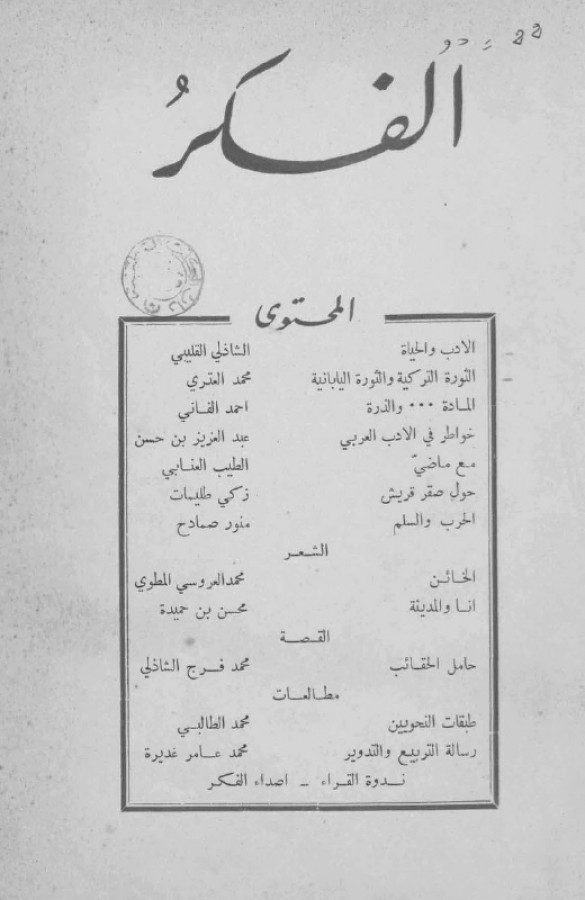 الفكر
المحتوى
الادب والحياة الشاذلي القليبي
الثورة التركية والثورة اليابانية محمد العتري
المادة ••• والذرة احمد الفاني
خواطر في الادب العربي عبد العزيز بن حسن
مع ماضيّ الطيب العنابي
حول صقر قريش زكي طليمات
الحرب والسلم منور صمادح
الشعر
الخائن محمد العروسي المطوي
انا والمدينة محسن بن حميدة
القصة
حامل الحقائب محمد فرج الشاذلي
مطالعات
طبقات النحويين محمد الطالبي
رسالة التربيع والتدوير محمد عامر غديرة
ندوة القراء - اصداء الفكر